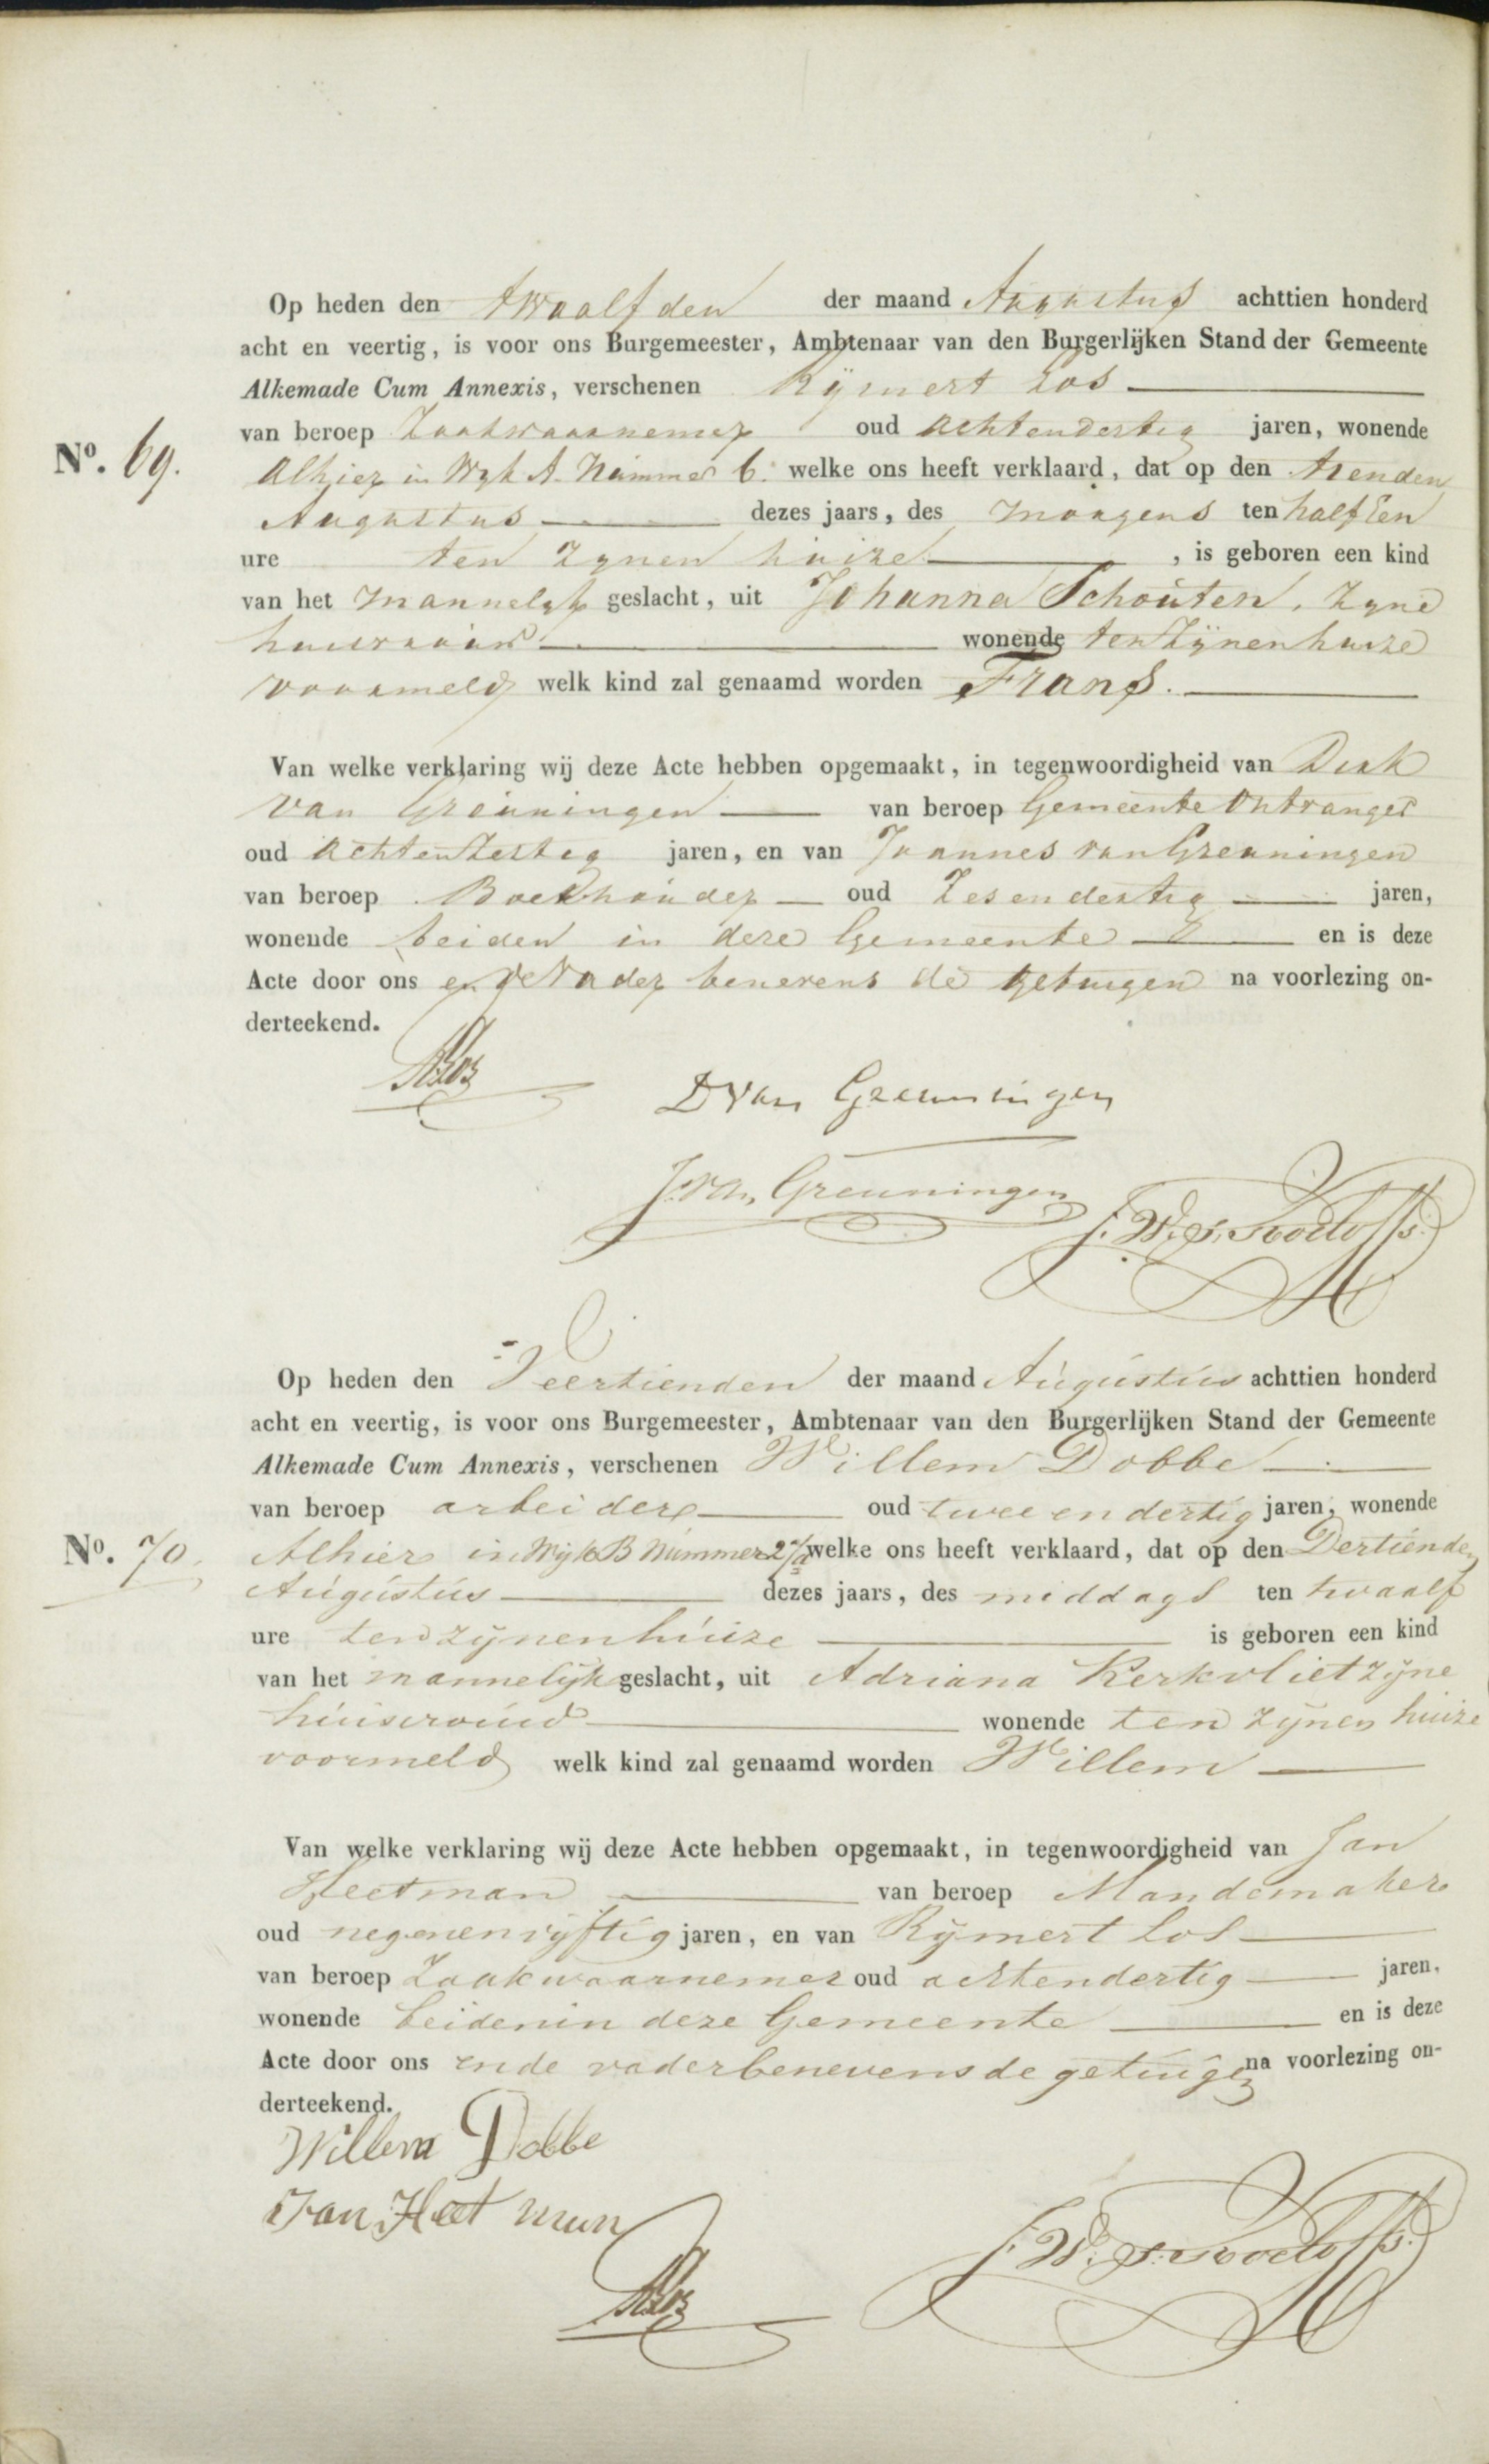 Op heden den twaalfden der maand Augustus achttien honderd
acht en veertig, is voor ons Burgemeester, Ambtenaar van den Burgerlijken Stand der Gemeente
Alkemade Cum Annexis, verschenen Rijmert Los
van beroep Zaakwaarnemer oud achtendertig jaren, wonende
No. 69. Alhier in Wyk A. Nummer 6. welke ons heeft verklaard, dat op den tienden
Augustus dezes jaars, des morgens ten half Een
ure ten zynen huize , is geboren een kind
van het mannelyk geslacht, uit Johanna Schouten, zyne
huisvrouw wonende ten zijnen huize
voormeld welk kind zal genaamd worden Frans.
Van welke verklaring wij deze Acte hebben opgemaakt, in tegenwoordigheid van Dirk
van Greuningen van beroep Gemeente Ontvanger
oud achtenzestig jaren, en van Joannes van Greuningen
van beroep Boekhouder oud Zesendertig jaren,
wonende beiden in deze Gemeente en is deze
Acte door ons en de vader benevens de getuigen na voorlezing on-
derteekend.
RLos
D van Greuningen
J. van Greuningen
Op heden den Veertienden der maand Augustus achttien honderd
acht en veertig, is voor ons Burgemeester, Ambtenaar van den Burgerlijken Stand der Gemeente
Alkemade Cum Annexis, verschenen Willem Dobbe
van beroep arbeider oud twee en dertig jaren, wonende
No. 70. Alhier in Wijk B Nummer 2/a welke ons heeft verklaard, dat op den Dertienden
Augustus dezes jaars, des middags ten twaalf
ure ten zijnen huize is geboren een kind
van het mannelijk geslacht, uit Adriana Kerkvliet zijne
huisvrouw wonende ten zijnen huize
voormeld welk kind zal genaamd worden Willem
Van welke verklaring wij deze Acte hebben opgemaakt, in tegenwoordigheid van Jan
Heetman van beroep Mandemaker
oud negenenvijftig jaren, en van Rijmert Los
van beroep Zaakwaarnemer oud achtendertig jaren,
wonende beiden in deze Gemeente en is deze
Acte door ons en de vader benevens de getuigen na voorlezing on-
derteekend.
Willem Dobbe
Jan Heetman
RLos